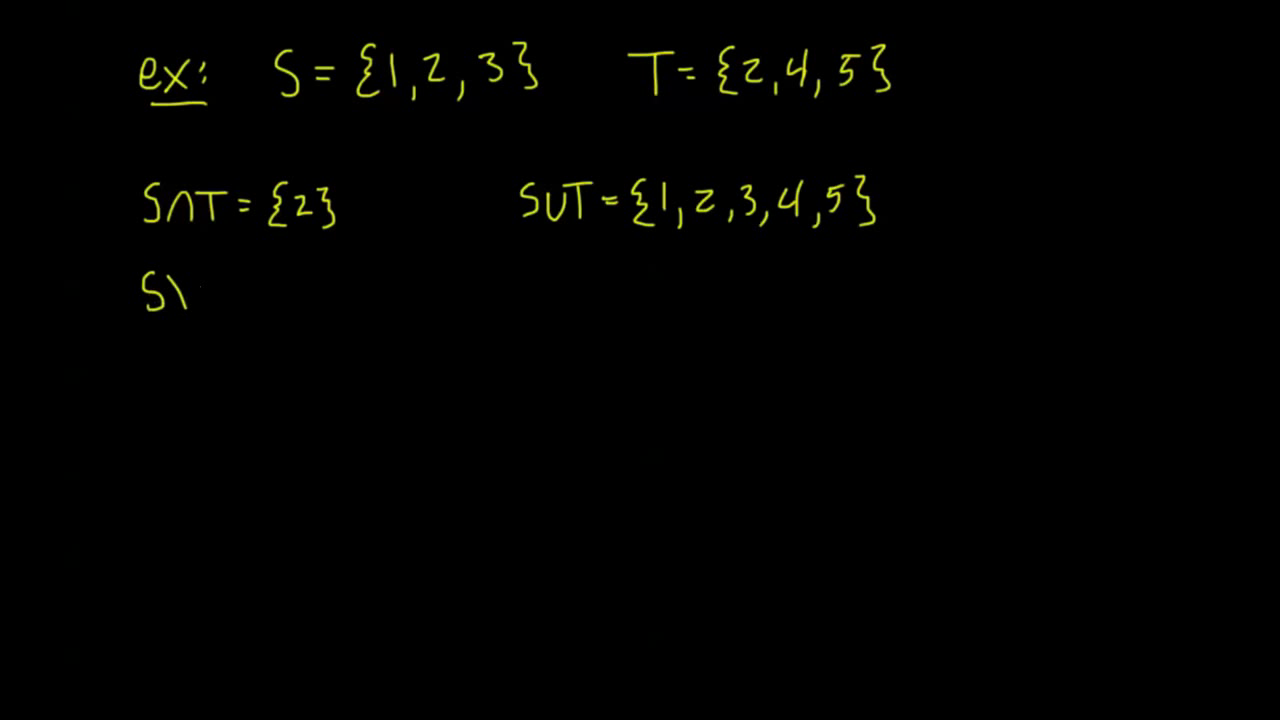 ex: S = {1, 2, 3} T = {2, 4, 5}
S∩T = {2} S∪T = {1, 2, 3, 4, 5}
S\